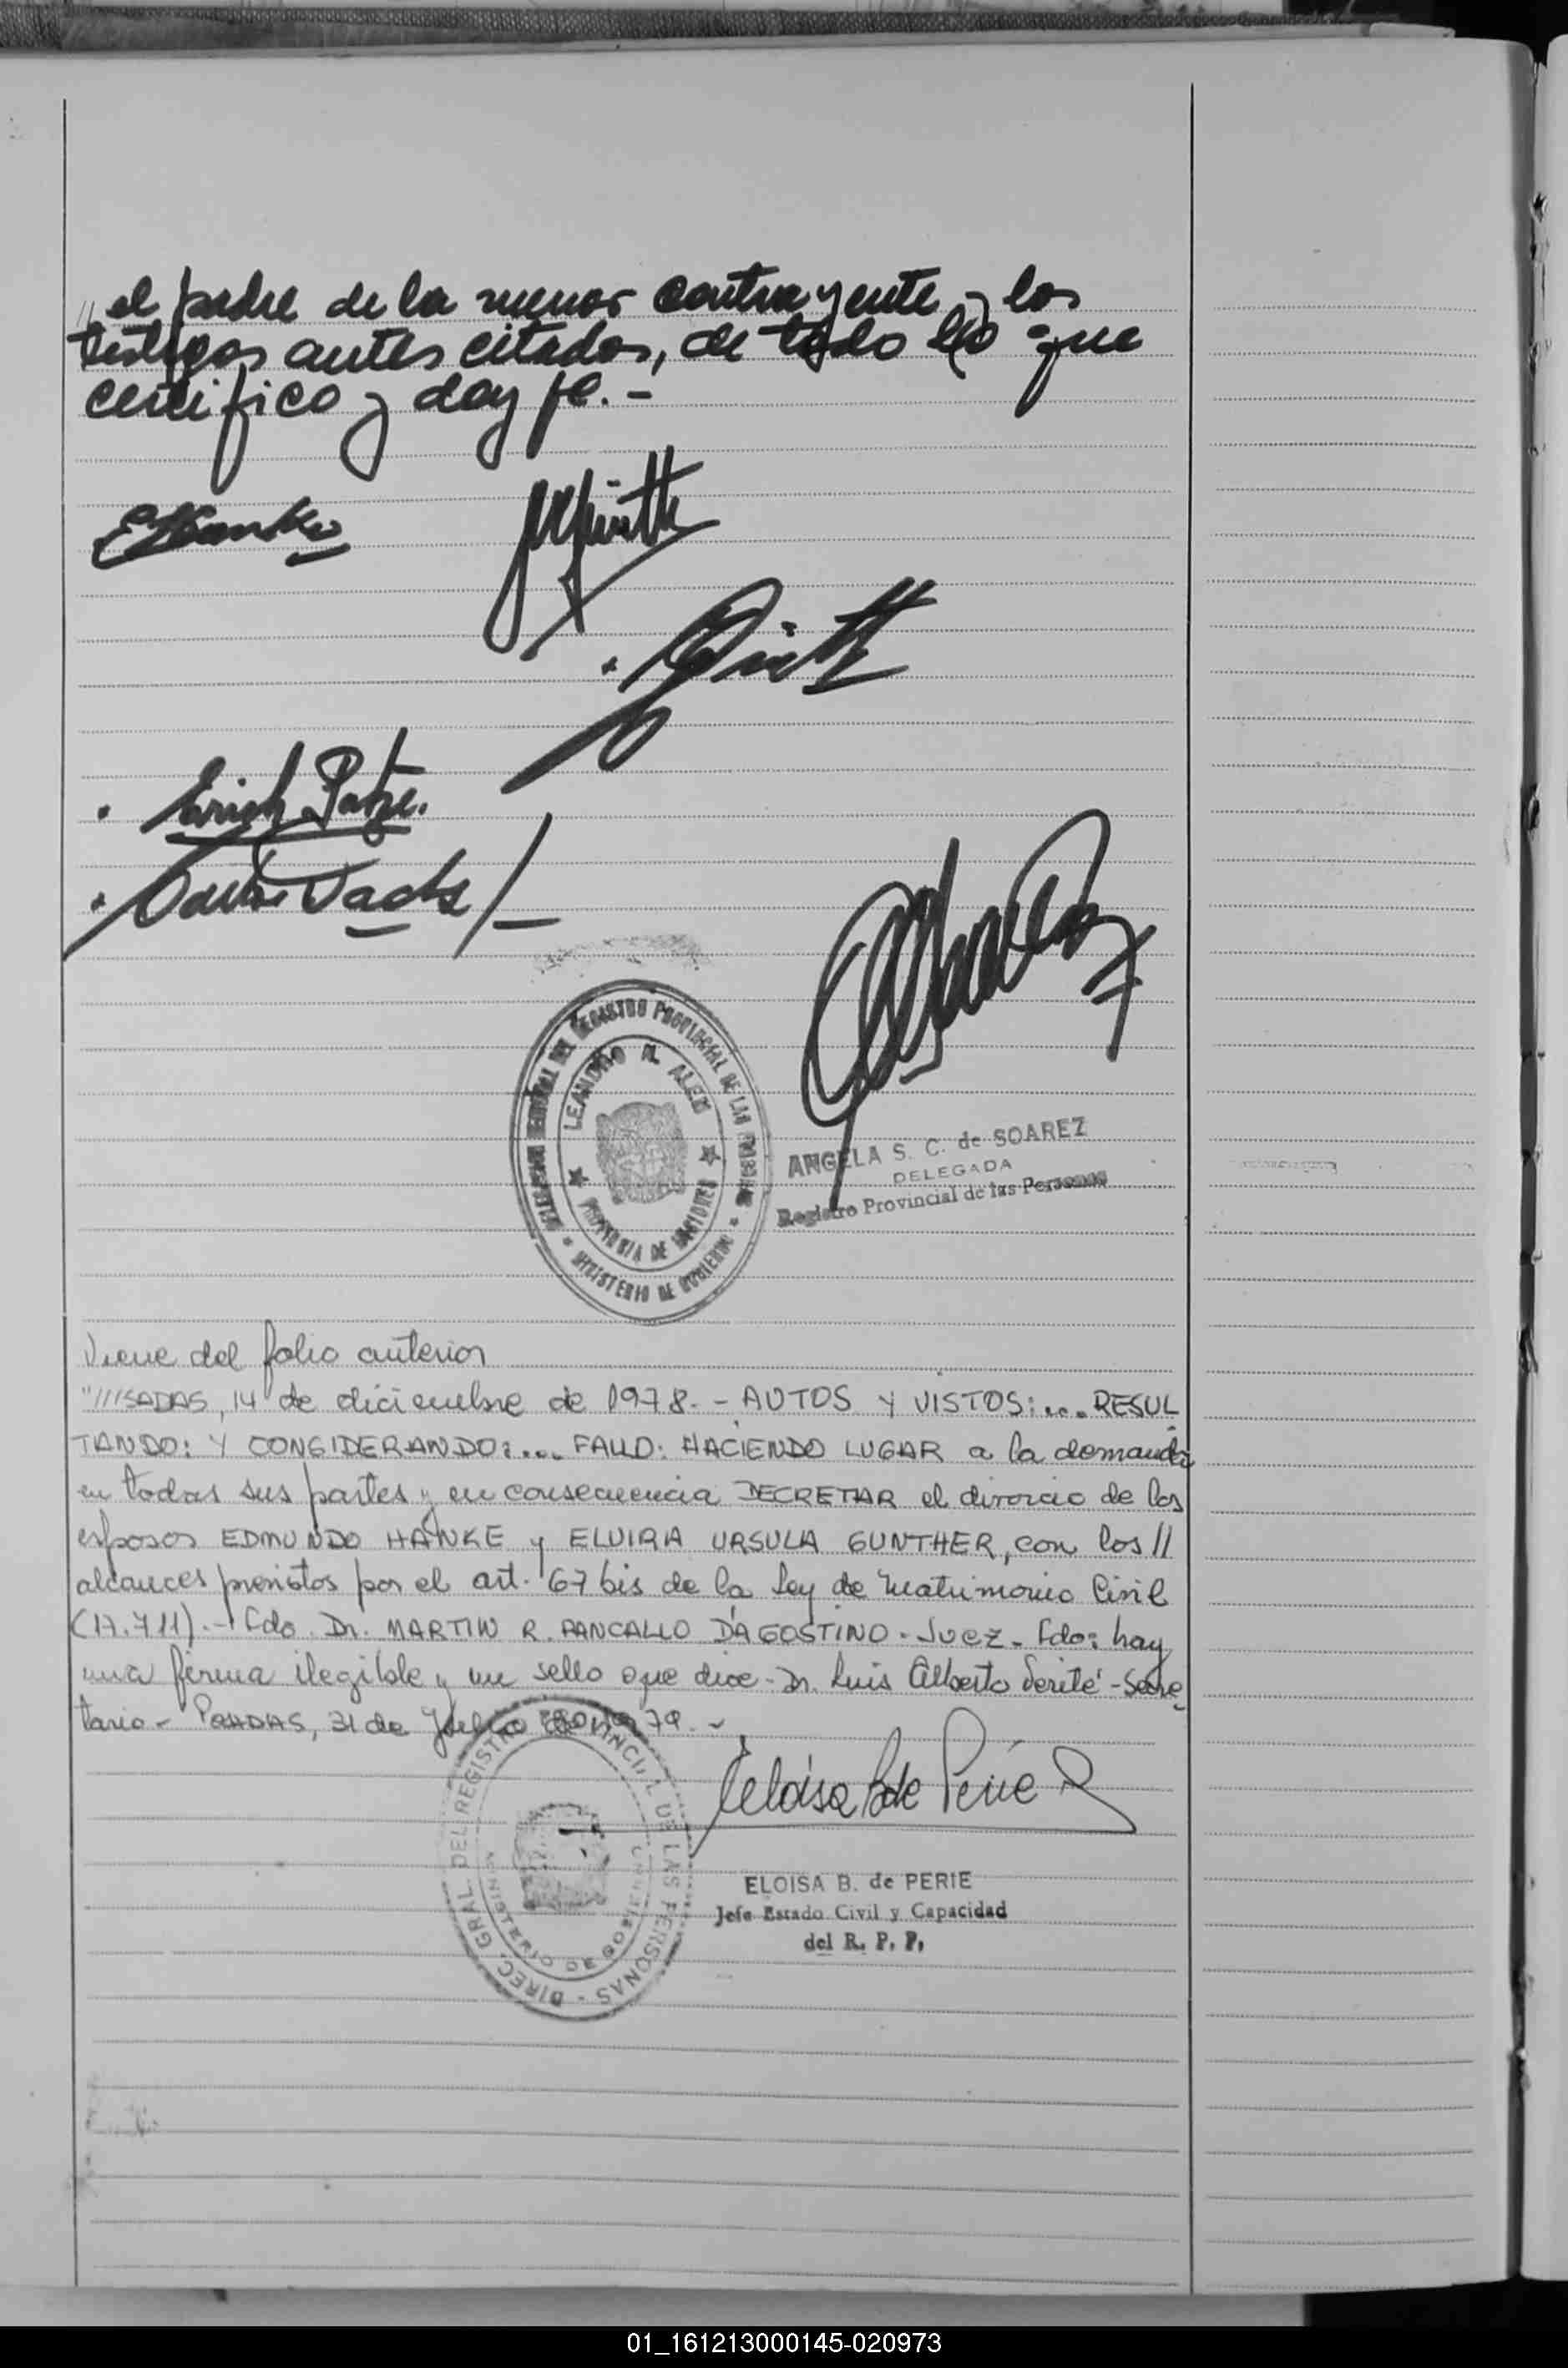 "el padre de la menor contrayente y los
testigos antes citados, de todo lo que
certifico y doy fe.-
EHanke
Erich Patze.
DIRECCION GENERAL DEL REGISTRO PROVINCIAL DE LAS PERSONAS
LEANDRO N. ALEM
PROVINCIA DE MISIONES
MINISTERIO DE GOBIERNO
ANGELA S. C. de SOAREZ
DELEGADA
Registro Provincial de las Personas
Viene del folio anterior
"///SADAS, 14 de diciembre de 1978.- AUTOS Y VISTOS:... RESUL
TANDO: Y CONSIDERANDO:... FALLO: HACIENDO LUGAR a la demanda
en todas sus partes y en consecuencia DECRETAR el divorcio de los
esposos EDMUNDO HANKE y ELVIRA URSULA GUNTHER, con los //
alcances previstos por el art. 67 bis de la Ley de Matrimonio Civil
(17.711).- Fdo. Dr. MARTIN R. PANCALLO D'AGOSTINO - Juez - Fdo: hay
una firma ilegible y un sello que dice - Dr. Luis Alberto - Secre-
tario - POSADAS, 31 de Julio de 1979.-
Eloisa B de Perie
DIREC. GRAL. DEL REGISTRO PROVINCIAL DE LAS PERSONAS -
MINISTERIO DE GOBIERNO
ELOISA B. de PERIE
Jefe Estado Civil y Capacidad
del R. P. P.
01_161213000145-020973